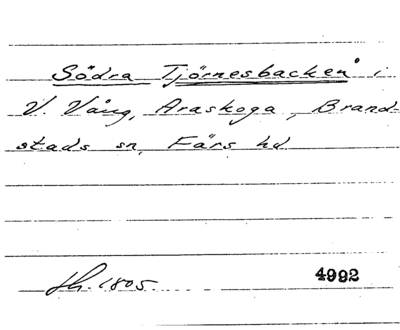 Södra Tjörnesbacken i
V. Vång, Araskoga, Brand-
stads sn, Färs hd
Sh. 1805. 4992